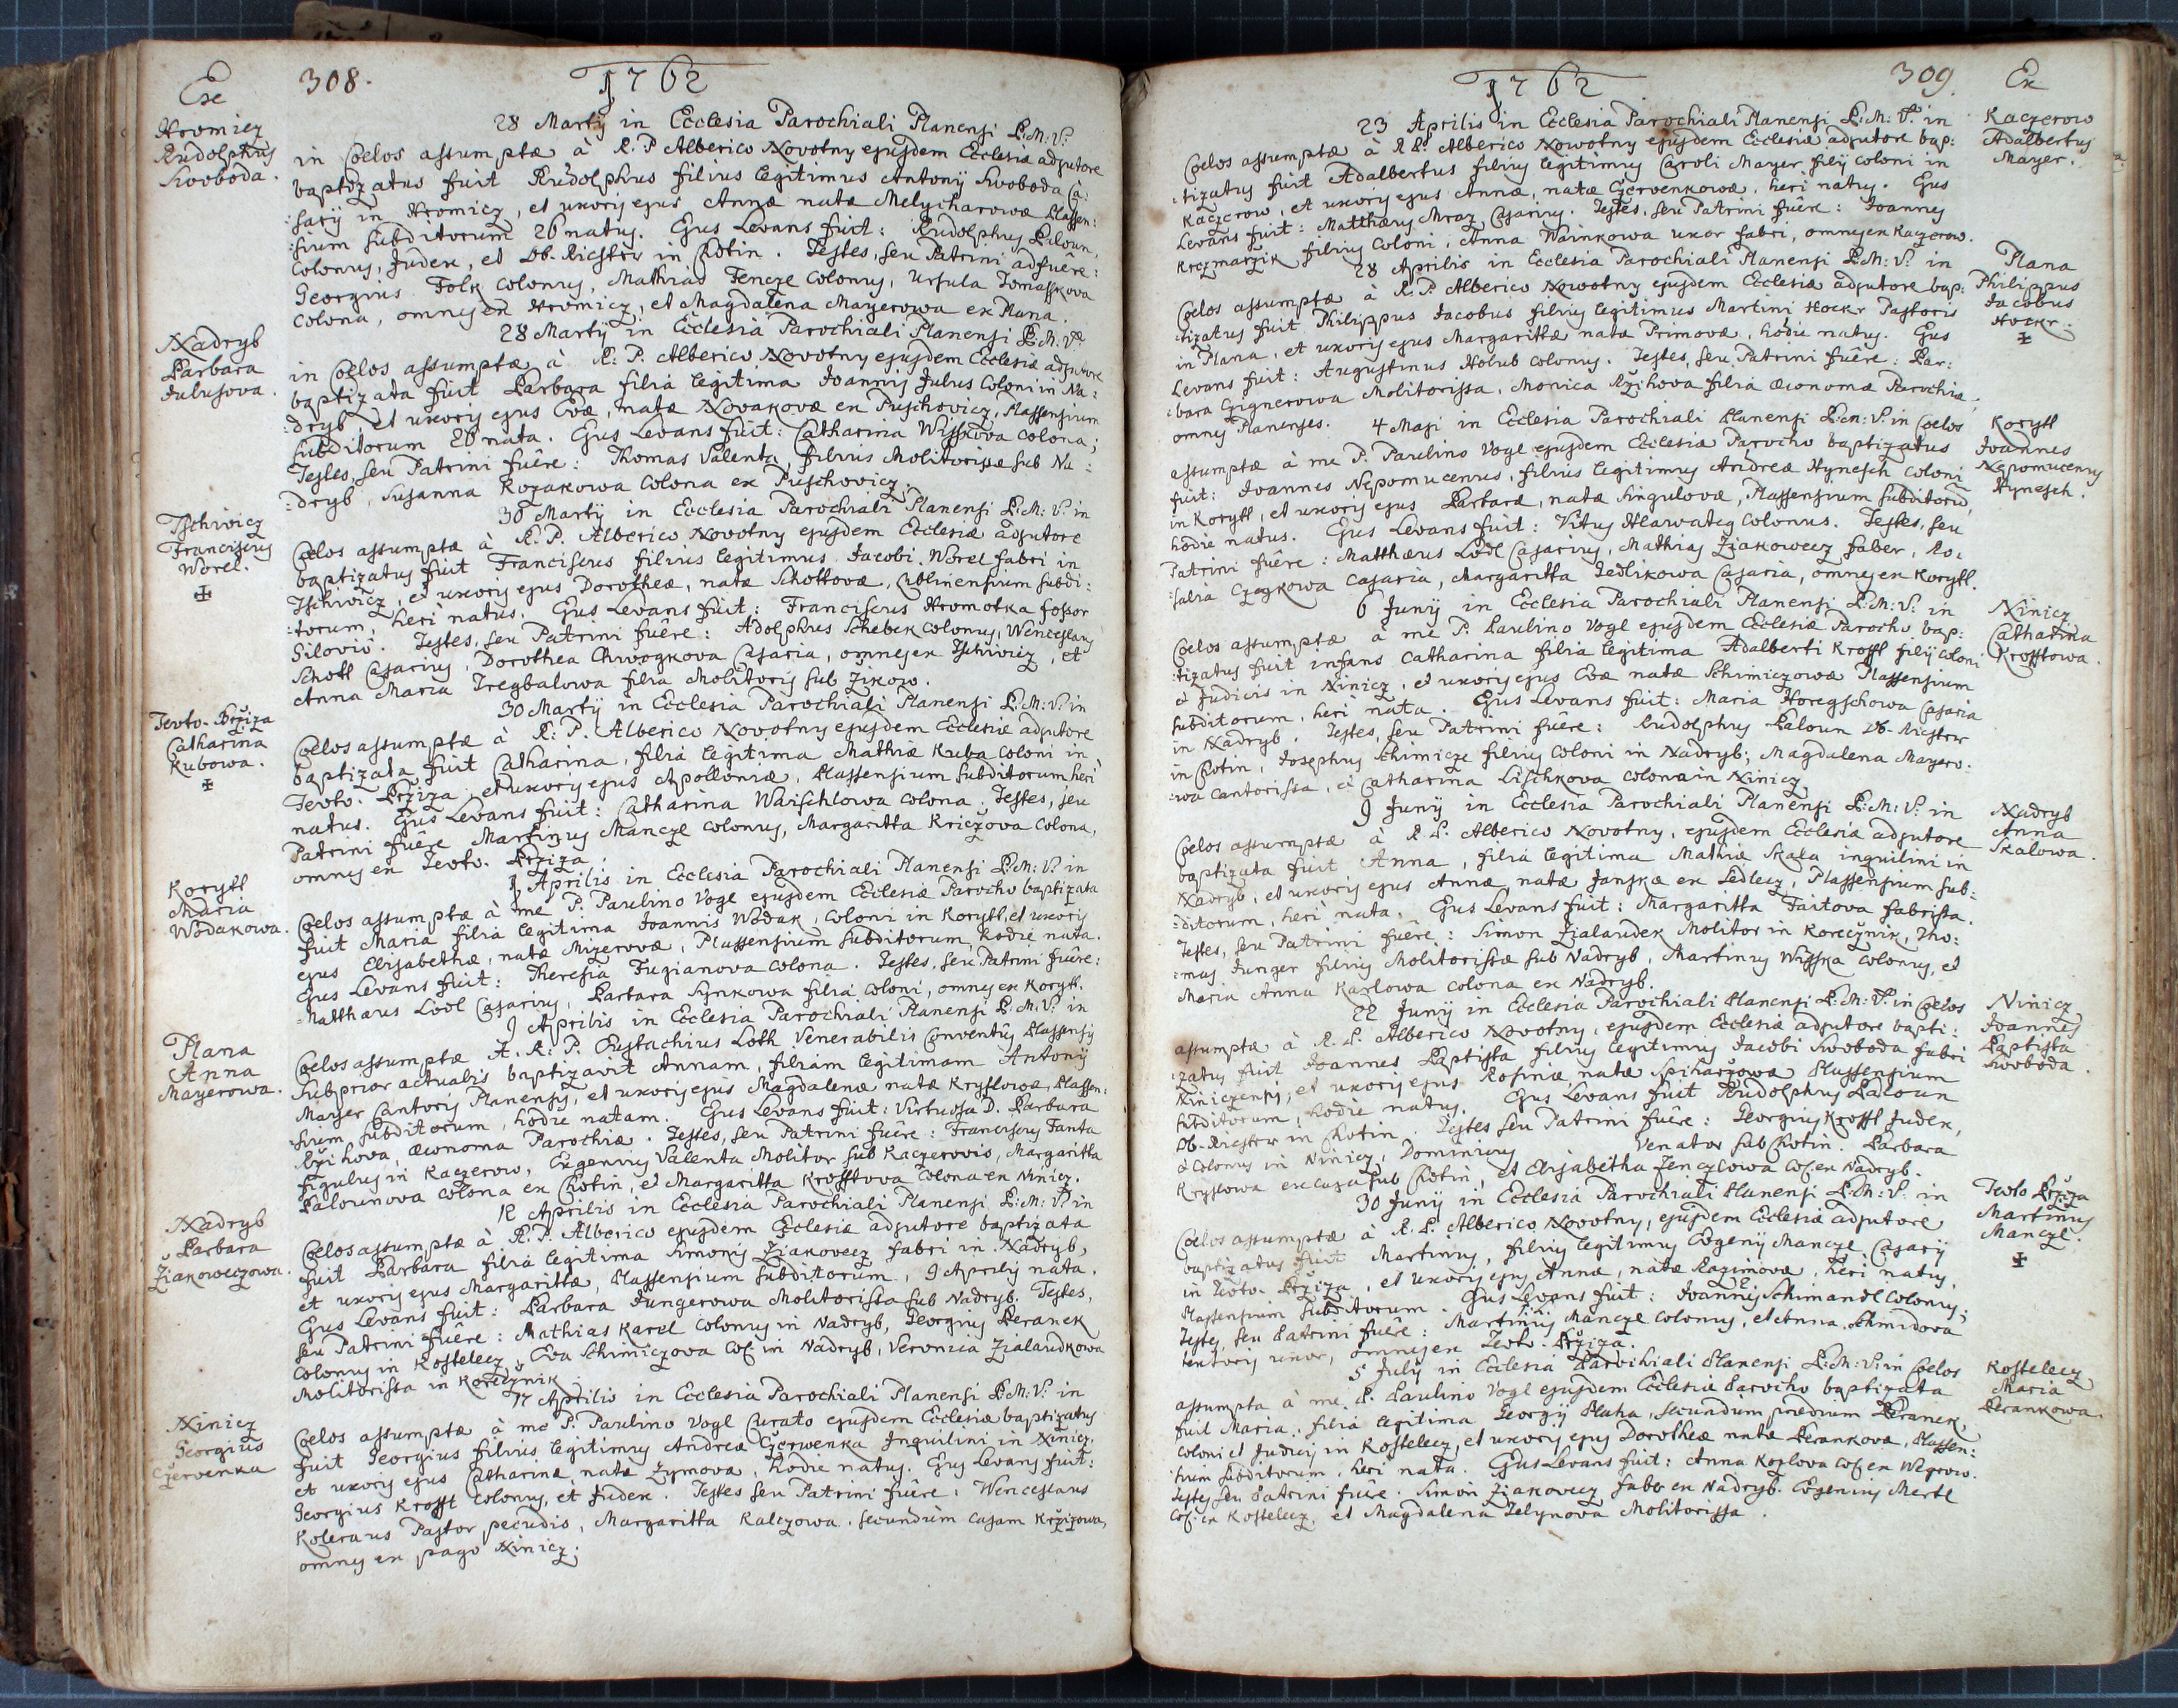 Ex
308.
1762
Hromicz
Rudolphus
Swoboda.
28 Martij in Ecclesia Parochiali Planensi B:M:V:
in Coelos assumptæ à R.P Alberico Novotny ejusdem Ecclesiæ adjutore
baptizatus fuit Rudolphus filius legitimus Antonij Swoboda Ca:
:sarij in Hromicz, et uxoris ejus Annæ natæ Melycharowæ Plassen:
:sium subditorum 26 natus. Ejus Levans fuit: Rudolphus Paloun,
Colonus, Judex, et Ob-Richter in Chotin. Testes, seu Patrini adfuêre:
Georgius Folk colonus, Mathias Fencze Colonus, Ursula Tomasskova
Colona, omnes ex Hromicz, et Magdalena Mayerowa ex Plana.
Nadryb
Barbara
Julusova.
28 Martij in Ecclesia Parochiali Planensi B:M:V:
in Coelos assumptæ à R: P. Alberico Novotny ejusdem Ecclesiæ adjutore
baptizata fuit Barbara filia legitima Joannis Julus Coloni in Na:
:dryb, et uxoris ejus Evæ, natæ Novakovæ ex Puschovicz, Plassensium
subditorum 26 nata. Ejus Levans fuit: Catharina Wisskova colona;
Testes, seu Patrini fuêre: Thomas Valenta, filius Molitorissæ sub Na:
:dryb, Susanna Kozakowa Colona ex Puschovicz.
Tschivicz
Franciscus
Worel.
✠
30 Martij in Ecclesia Parochiali Planensi B:M:V: in
Coelos assumptæ à R.P. Alberico Novotny ejusdem Ecclesiæ adjutore
baptizatus fuit Franciscus filius legitimus Jacobi Worel fabri in
Tschivicz, et uxoris ejus Dorotheæ, natæ Schottovæ, Mlinensium subdi:
:torum, heri natus. Ejus Levans fuit: Franciscus Hromotka fossor
Silovis. Testes, seu Patrini fuêre: Adolphus Schebek Colonus, Wenceslaus
Schott Casarius, Dorothea Chwogkova Casaria, omnes ex Tschivicz, et
Anna Maria Tregbalowa filia Molitoris sub Zikow.
Tevto-Brziza
Catharina
Kubowa.
✠
30 Martij in Ecclesia Parochiali Planensi B:M:V: in
Coelos assumptæ à R: P. Alberico Novotny ejusdem Ecclesiæ adjutore
baptizata fuit Catharina, filia legitima Mathiæ Kuba Coloni in
Tevto. Brziza, et uxoris ejus Apolloniæ, Plassensium subditorum heri
natus. Ejus Levans fuit: Catharina Waischlowa colona. Testes, seu
Patrini fuêre Martinus Mancze colonus, Margaritta Kriczova colona,
omnes ex Tevto. Brziza.
Korytt
Maria
Wodakowa.
9 Aprilis in Ecclesia Parochiali Planensi B:M:V: in
Coelos assumptæ à me P: Paulino Vogl ejusdem Ecclesiæ Parocho baptizata
fuit Maria filia legitima Joannis Wodak, Coloni in Korytt, et uxoris
ejus Elisabethæ, natæ Mizerovæ, Plassensium subditorum, hodie nata.
Ejus Levans fuit: Theresia Fuzianova colona. Testes, seu Patrini fuêre:
Matthæus Lodl Casarius, Barbara Synkowa filia coloni, omnes ex Korytt.
Plana
Anna
Mayerowa.
9 Aprilis in Ecclesia Parochiali Planensi B:M:V: in
Coelos assumptæ A. R: P. Eustachius Loth Venerabilis Conventûs Plassensis
Subprior actualis baptizavit Annam, filiam legitimam Antonij
Mayer Cantoris Planensis, et uxoris ejus Magdalenæ natæ Krystowæ, Plassen:
:sium subditorum, hodie natam. Ejus Levans fuit: Virtuosa D. Barbara
Rzihova, œconoma Parochiæ. Testes, seu Patrini fuêre: Franciscus Fanta
figulus in Kaczerow, Eugenius Valenta Molitor sub Kaczerovis, Margaritta
Palounova colona ex Chotin, et Margaritta Krofftova Colona ex Ninicz.
Nadryb
Barbara
Ziakoweczowa.
12 Aprilis in Ecclesia Parochiali Planensi B:M:V: in
Coelos assumptæ à R:P. Alberico ejusdem Ecclesiæ adjutore baptizata
fuit Barbara filia legitima Simonis Ziakovecz fabri in Nadryb,
et uxoris ejus Margarittæ, Plassensium subditorum, 9 Aprilis nata.
Ejus Levans fuit: Barbara Jungerowa Molitorissa sub Nadryb. Testes,
seu Patrini fuêre: Mathias Karel Colonus in Nadryb, Georgius Beranek
Colonus in Kostelecz, Eva Schimiczova Col: in Nadryb, Veronica Zialaudkowa
Molitorissa in Korecznik.
Ninicz
Georgius
Czervenka
17 Aprilis in Ecclesia Parochiali Planensi B:M:V: in
Coelos assumptæ à me P: Paulino Vogl Curato ejusdem Ecclesiæ baptizatus
fuit Georgius filius legitimus Andreæ Czerwenka Inquilini in Ninicz,
et uxoris ejus Catharinæ, natæ Zymovæ, hodie natus. Ejus Levans fuit:
Georgius Krofft Colonus, et Judex. Testes seu Patrini fuêre: Wenceslaus
Koleraus Pastor pecudis, Margaritta Kalczowa. secundùm casam Krzizowa,
omnes ex pago Ninicz.
1762
309.
Ex
Kaczerow
Adalbertus
Mayer.
23 Aprilis in Ecclesia Parochiali Planensi B:M:V: in
Coelos assumptæ à R.P. Alberico Nowotny ejusdem Ecclesiæ adjutore bap:
:tizatus fuit Adalbertus filius legitimus Caroli Mayer filij coloni in
Kaczerow, et uxoris ejus Annæ, natæ Czervenkowæ, heri natus. Ejus
Levans fuit: Matthæus Mraz Casarius. Testes, seu Patrini fuêre: Joannes
Krczmarzik filius Coloni, Anna Wainkowa uxor fabri, omnes ex Kaczerow.
Plana
Philippus
Jacobus
Hockr.
✠
28 Aprilis in Ecclesia Parochiali Planensi B:M:V: in
Coelos assumptæ à R.P. Alberico Nowotny ejusdem Ecclesiæ adjutore bap:
:tizatus fuit Philippus Jacobus filius legitimus Martini Hockr Pastoris
in Plana, et uxoris ejus Margarittæ natæ Primovæ, hodie natus. Ejus
Levans fuit: Augustinus Holub colonus. Testes, seu Patrini fuêre: Bar:
:bara Gignerowa Molitorissa, Monica Rzihova filia œconomæ Parochiæ,
omnes Planenses.
Korytt
Joannes
Nepomucenus
Hynesch.
4 Maji in Ecclesia Parochiali Planensi B:M:V: in Coelos
assumptæ à me P. Paulino Vogl ejusdem Ecclesiæ Parocho baptizatus
fuit: Joannes Nepomucenus, filius legitimus Andreæ Hynesch Coloni
in Korytt, et uxoris ejus Barbaræ, natæ Singulovæ, Plassensium subditorũ,
hodie natus. Ejus Levans fuit: Vitus Hlawateg colonus. Testes, seu
Patrini fuêre: Matthæus Lodl Casarius, Mathias Ziakowecz faber, Ro:
:salia Czagkowa Casaria, Margaritta Jedlikowa Casaria, omnes ex Korytt.
Ninicz
Catharina
Krofftowa.
6 Junij in Ecclesia Parochiali Planensi B:M:V: in
Coelos assumptæ à me P: Paulino Vogl ejusdem Ecclesiæ Parocho bap:
:tizatus fuit infans Catharina filia legitima Adalberti Krofft filij coloni
et Judicis in Ninicz, et uxoris ejus Evæ natæ Schimiczowæ Plassensium
subditorum, heri nata. Ejus Levans fuit: Maria Horegschowa Casaria
in Nadryb. Testes, seu Patrini fuêre: Rudolphus Paloun Ob-Richter
in Chotin, Josephus Schimicze filius coloni in Nadryb; Magdalena Mayero:
:wa Cantorissa, et Catharina Lischkova colona in Ninicz
Nadryb
Anna
Skalowa.
9 Junij in Ecclesia Parochiali Planensi B:M:V: in
Coelos assumptæ à R.P. Alberico Novotny, ejusdem Ecclesiæ adjutore
baptizata fuit Anna, filia legitima Mathiæ Skala inquilini in
Nadryb, et uxoris ejus Annæ, natæ Janskæ ex Sedlecz, Plassensium sub:
:ditorum, heri nata. Ejus Levans fuit: Margaritta Faitova fabrissa.
Testes, seu Patrini fuêre: Simon Zialaudek Molitor in Korecznik, Tho:
:mas Junger filius Molitorissæ sub Nadryb, Martinus Wisska colonus, et
Maria Anna Karlowa colona ex Nadryb.
Ninicz
Joannes
Baptista
Swoboda.
22 Junij in Ecclesia Parochiali Planensi B:M:V: in Coelos
assumptæ à R.P. Alberico Novotny, ejusdem Ecclesiæ adjutore bapti:
:zatus fuit Joannes Baptista filius legitimus Jacobi Swoboda fabri
Niniczensis, et uxoris ejus Rosinæ natæ Spiharzowæ Plassensium
subditorum, hodie natus. Ejus Levans fuit Rudolphus Paloun
Ob-Richter in Chotin. Testes seu Patrini fuêre: Georgius Krofft Judex,
et Colonus in Ninicz, Dominicus Venator sub Chotin. Barbara
Krystowa ex casa sub Chotin, et Elisabetha Jenczlowa Col: ex Nadryb.
Tevto Brziza
Martinus
Mancze.
✠
30 Junij in Ecclesia Parochiali Planensi B:M:V: in
Coelos assumptæ à R.P. Alberico Novotny, ejusdem Ecclesiæ adjutore
baptizatus fuit Martinus, filius legitimus Eugenij Mancze Casarij
in Tevto-Brziza, et uxoris ejus Annæ, natæ Razimovæ, heri natus,
Plassensium subditorum. Ejus Levans fuit: Joannes Schimandl Colonus;
Testes, seu Patrini fuêre: Martinus Mancze colonus, et Anna Schmidova
textoris uxor, omnes ex Tevt. Brziza.
Kostelecz
Maria
Berankowa.
5 Julij in Ecclesia Parochiali Planensi B:M:V: in Coelos
assumpta à me P. Paulino Vogl ejusdem Ecclesiæ Parocho baptizata
fuit Maria, filia legitima Georgij Pluha, secundum prædium Beranek,
Coloni et Judicis in Kostelecz, et uxoris ejus Dorotheæ natæ Berankovæ, Plassen:
:sium subditorum, heri nata. Ejus Levans fuit: Anna Kozlova Col: ex Wegrow.
Testes seu Patrini fuêre. Simon Ziakovecz faber ex Nadryb. Eugenius Mertl
Col: ex Kostelecz, et Magdalena Jelynova Molitorissa.